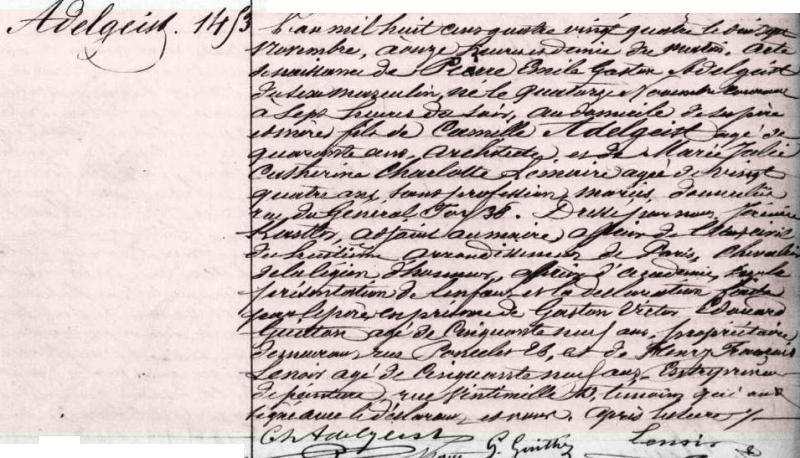 Adelgeist. 1453
L'an mil huit cent quatre vingt quatre le dix sept
Novembre, à onze heures et demie du matin. Acte
de naissance de Pierre Emile Gaston Adelgeist
du sexe masculin, né le quatorze Novembre courant
à sept heures du soir, au domicile de ses père
et mère fils de Camille Adelgeist agé de
quarante ans, Architecte, et de Marie Julie
Catherine Charlotte Lemaire agée de vingt
quatre ans, sans profession, mariés, domiciliés
rue du Général Foy 38. Dressé par nous,
adjoint au maire, officier de l'état civil
du huitième arrondissement de Paris, Chevalier
de la légion d'honneur, officier d'académie, sur la
présentation de l'enfant et la déclaration faite
par le père, en présence de Gaston Victor Edouard
Guitton agé de cinquante neuf ans, propriétaire,
demeurant rue Poncelet 26, et de Henry François
Lenoir agé de cinquante neuf ans, Entrepreneur
de peinture, rue Vintimille, témoins qui ont
signé avec le déclarant et nous, après lecture
Ch Adelgeist
G. Lenoir